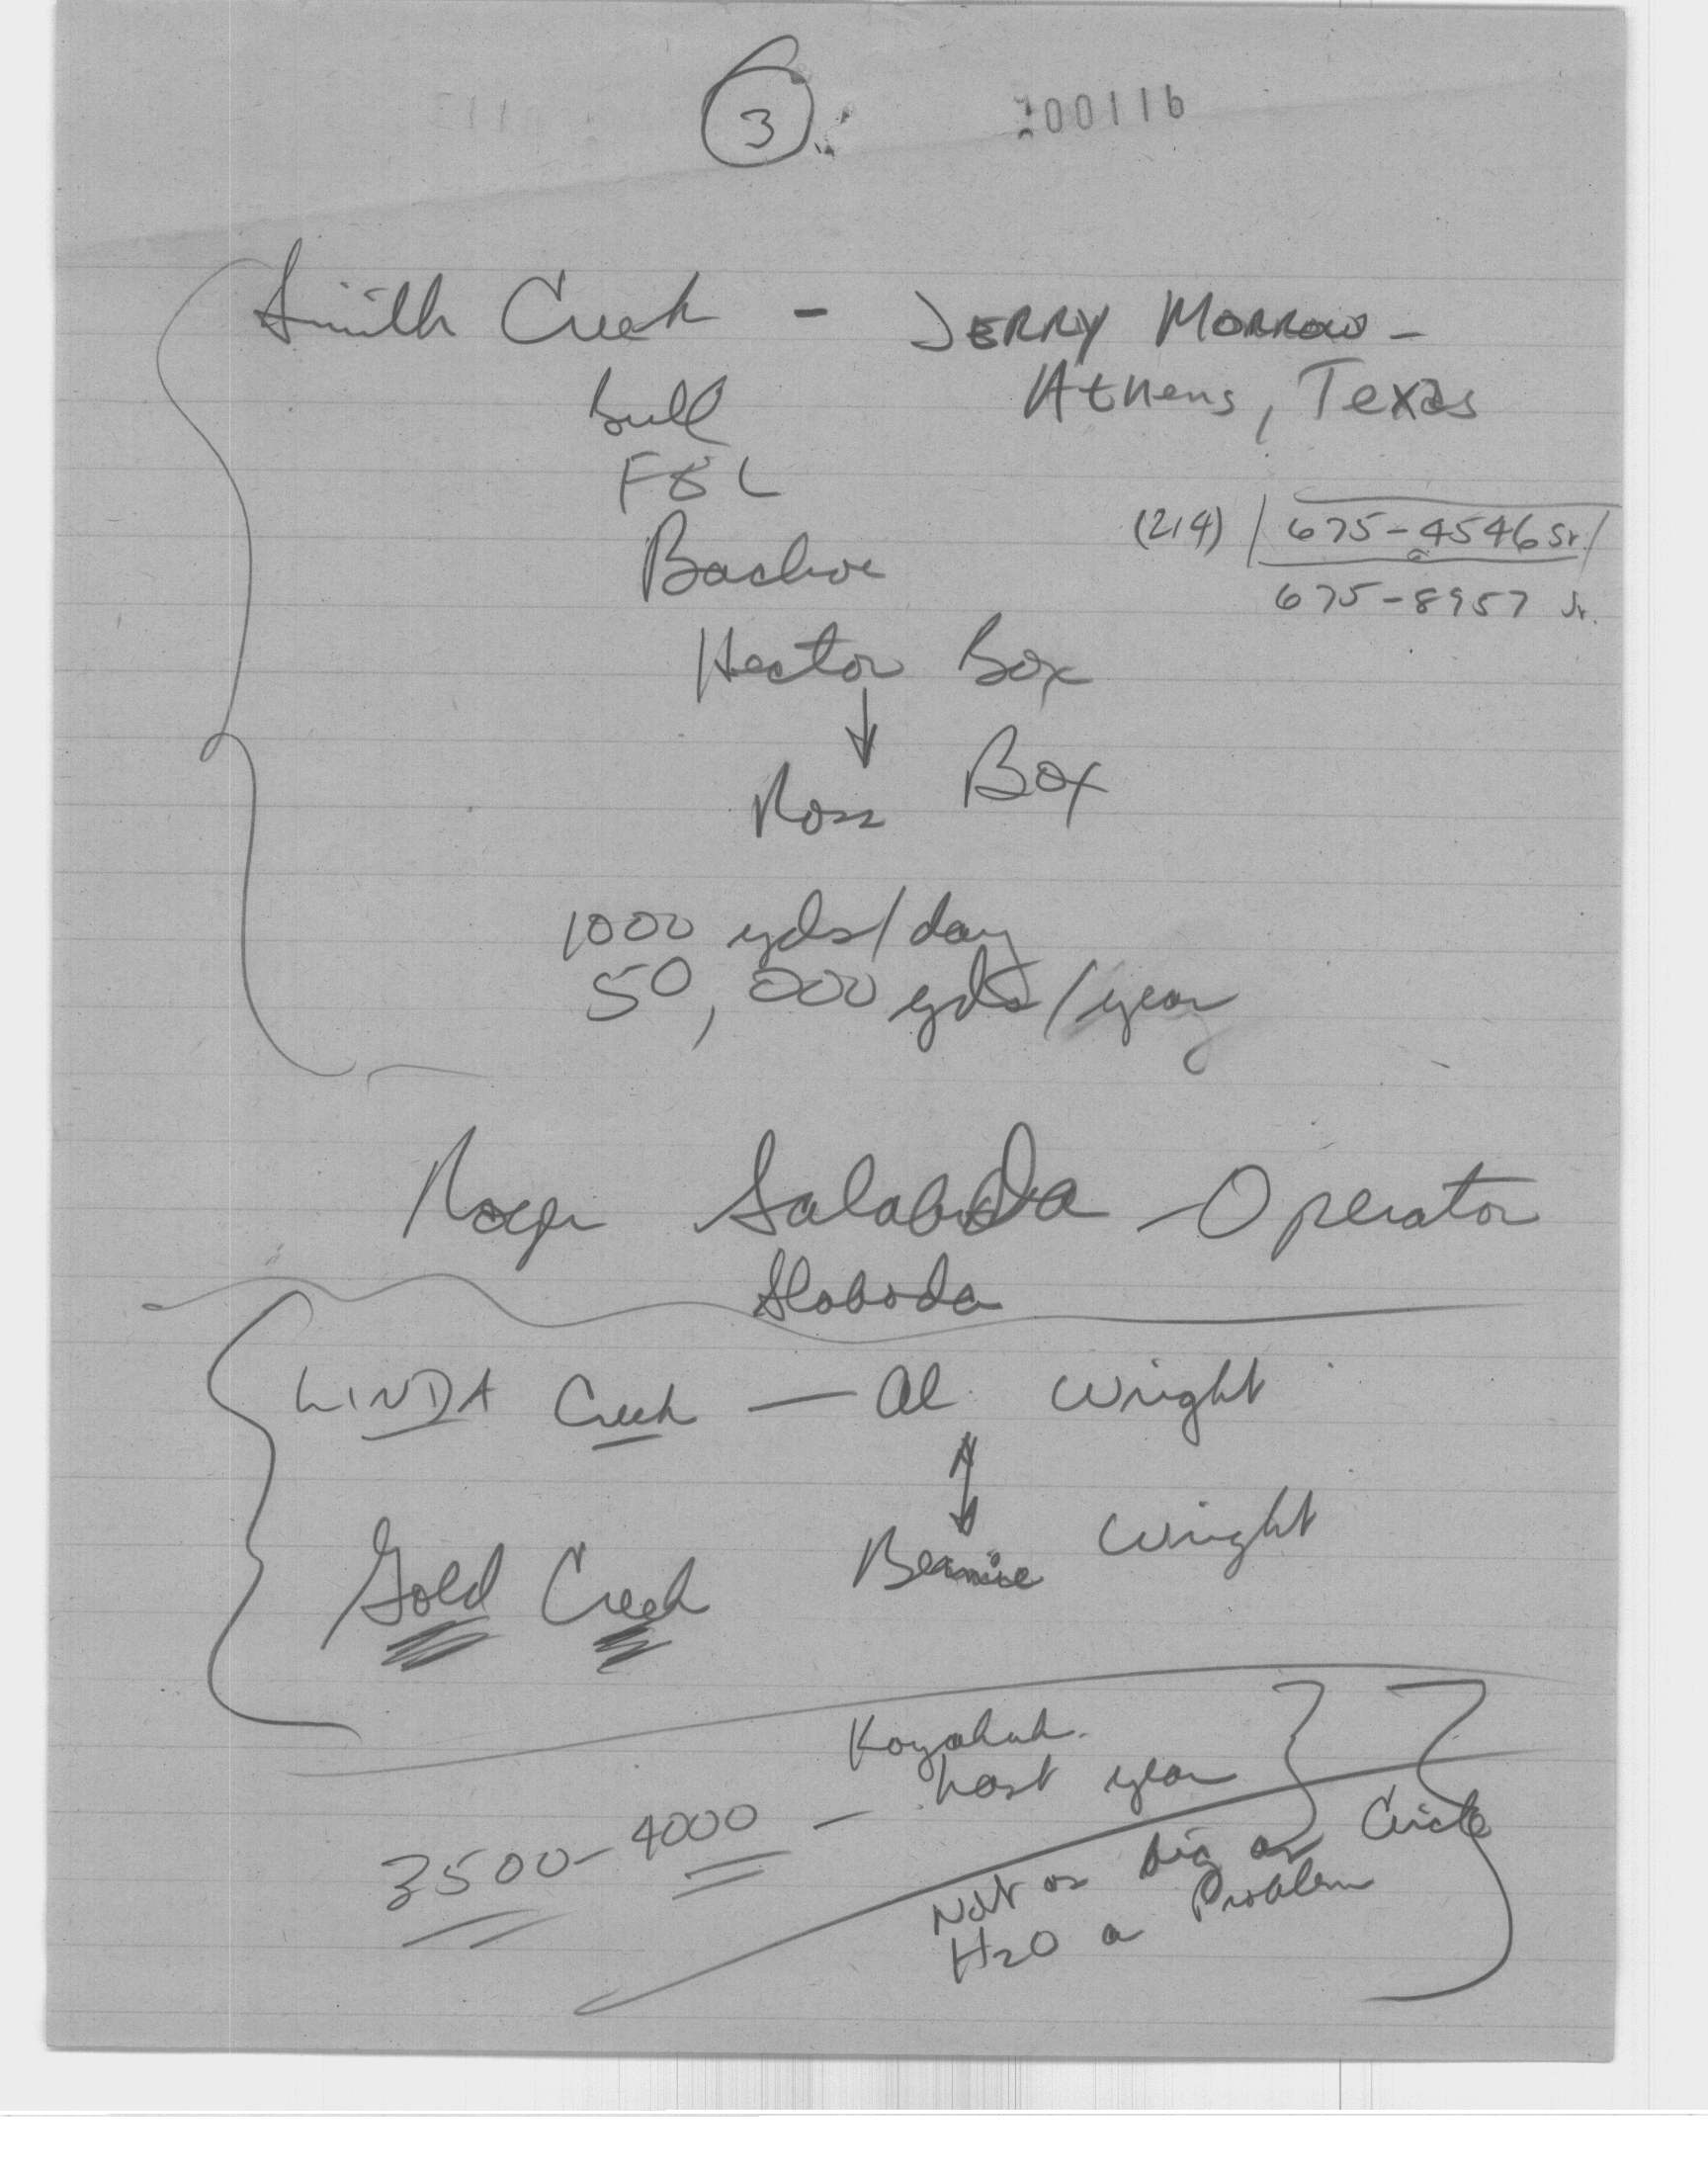 3
200116
Smith Creek - JERRY MORROW -
Athens, Texas
Bull
FEL
(214) 675-4546 Sr.
Backhoe
675-8957 Jr.
Hector Box
Ross Box
1000 yds/day
50,000 yds/year
Roger Salaboda - Operator
Sloboda
LINDA Creek - Al Wright
Bernice Wright
Gold Creek
Koyukuk
Last year
3500-4000 -
Not as big as Circle
H2O a Problem